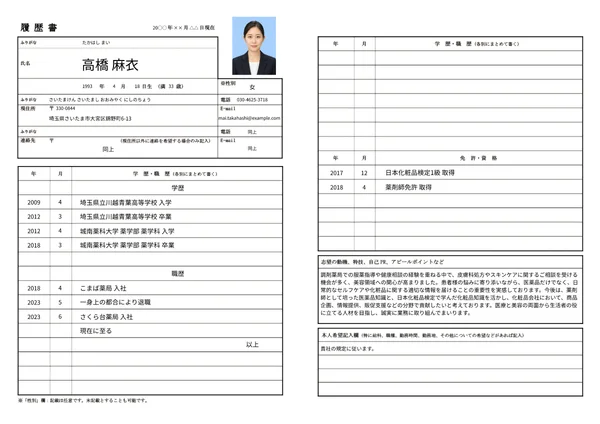 履 歴 書
20○○ 年 ×× 月 △△ 日 現在
ふりがな たかはし まい
氏名 高橋 麻衣
1993 年 4 月 18 日生 (満 33 歳)
※性別
女
ふりがな さいたまけん さいたまし おおみやく にしのちょう
電話 030-4625-3718
現住所 〒 330-0844
埼玉県さいたま市大宮区錦野町6-13
E-mail
mai.takahashi@example.com
ふりがな
電話 同上
連絡先 〒 (現住所以外に連絡を希望する場合のみ記入)
同上
E-mail
同上
年 月 学 歴・職 歴 (各別にまとめて書く)
学歴
2009 4 埼玉県立川越青葉高等学校 入学
2012 3 埼玉県立川越青葉高等学校 卒業
2012 4 城南薬科大学 薬学部 薬学科 入学
2018 3 城南薬科大学 薬学部 薬学科 卒業
職歴
2018 4 こまば薬局 入社
2023 5 一身上の都合により退職
2023 6 さくら台薬局 入社
現在に至る
以上
※「性別」欄：記載は任意です。未記載とすることも可能です。
年 月 学 歴・職 歴 (各別にまとめて書く)
年 月 免 許・資 格
2017 12 日本化粧品検定1級 取得
2018 4 薬剤師免許 取得
志望の動機、特技、自己PR、アピールポイントなど
調剤薬局での服薬指導や健康相談の経験を重ねる中で、皮膚科処方やスキンケアに関するご相談を受ける
機会が多く、美容領域への関心が高まりました。患者様の悩みに寄り添いながら、医薬品だけでなく、日
常的なセルフケアや化粧品に関する適切な情報を届けることの重要性を実感しております。今後は、薬剤
師として培った医薬品知識と、日本化粧品検定で学んだ化粧品知識を活かし、化粧品会社において、商品
企画、情報提供、販促支援などの分野で貢献したいと考えております。医療と美容の両面から生活者の役
に立てる人材を目指し、誠実に業務に取り組んでまいります。
本人希望記入欄 (特に給料、職種、勤務時間、勤務地、その他についての希望などがあれば記入)
貴社の規定に従います。